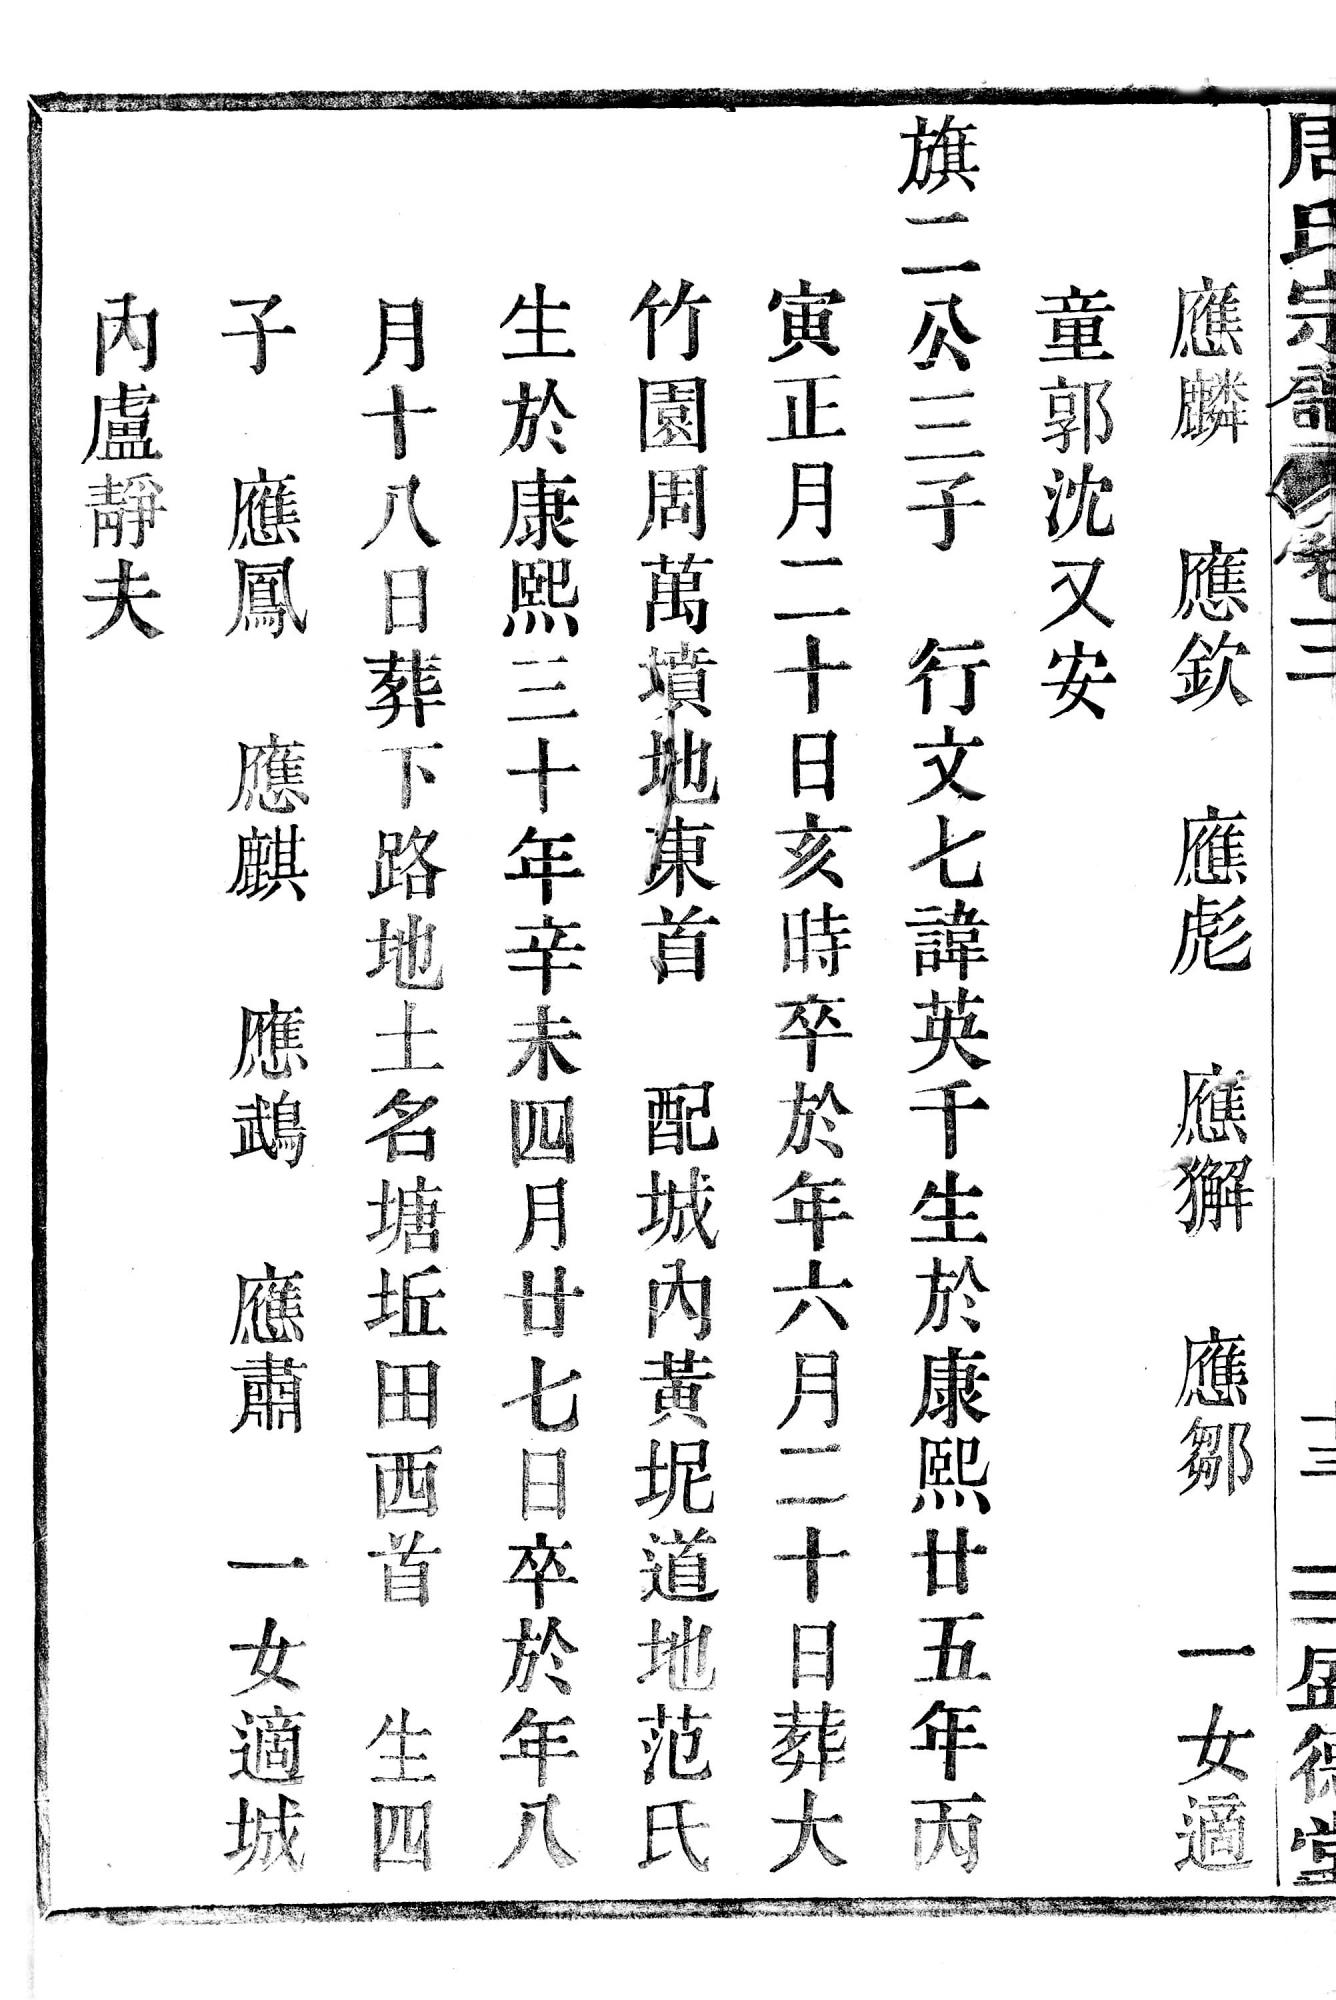 周氏宗譜 卷三 十三 二 盛德堂
應麟 應欽 應彪 應獬 應鄒 一女適
童郭沈又安
旗二公三子 行文七諱英千生於康熙廿五年丙
寅正月二十日亥時卒於年六月二十日葬大
竹園周萬墳地東首 配城內黃坭道地范氏
生於康熙三十年辛未四月廿七日卒於年八
月十八日葬下路地土名塘坵田西首 生四
子 應鳳 應麒 應鵡 應肅 一女適城
內盧靜夫